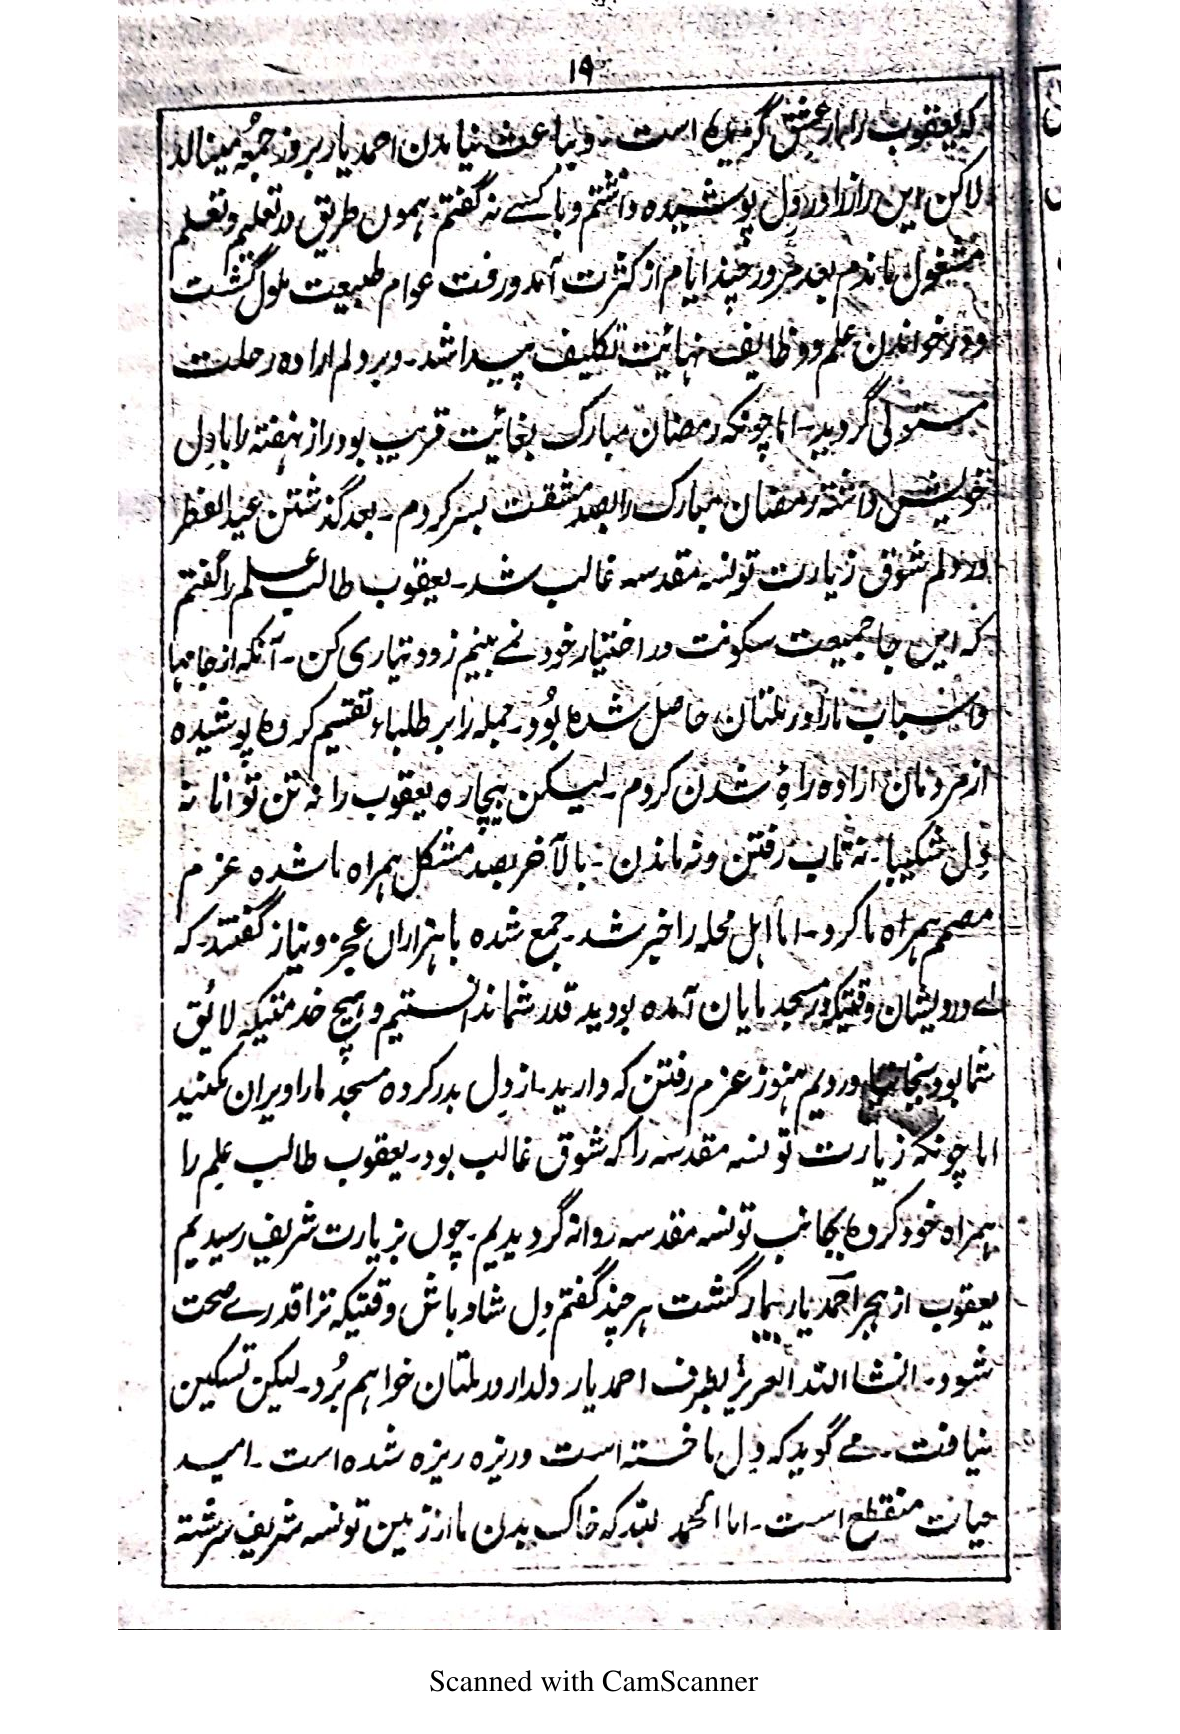 ۱۹
که یعقوب را مار عشق گزیده است ۔ و بباعث نیامدن احمد یار بروز جمعہ مینالد
لاکن این راز را در دِل پوشیده داشتم و با کسے نہ گفتم ۔ ہموں طریق در تعلیم و تعلم
مشغول ماندم بعد مرور چند ایام از کثرت آمد و رفت عوام طبیعت ملول گشت
و در خواندن علم و وظایف نہائیت تکلیف پیدا شد ۔ و بر دلم ارادہ رحلت
مستولی گردید ۔ اما چونکہ رمضان مبارک بغائیت قریب بود راز نہفتہ را با دِل
خویش داشتہ رمضان مبارک را بصد مشقت بسر کردم ۔ بعد گذشتن عید الفطر
در دلم شوق زیارت تونسہ مقدسہ غالب شد ۔ یعقوب طالب علم را گفتم
کہ این جا جمیعت سکونت در اختیار خود نمے بینم زود تیاری کن ۔ آنکہ از جامہا
و اسباب مارا در ملتان حاصل شدہ بُود ۔ جملہ را بر طلباء تقسیم کردہ پوشیدہ
از مردمان ارادہ راہِ شدن کردم ۔ لیکن بیچارہ یعقوب را نہ تن توانا نہ
دِل شکیبا ۔ نہ تاب رفتن و نہ ماندن ۔ بالآخر بصد مشکل ہمراہ ما شدہ عزم
مصمم ہمراہ ما کرد ۔ اما اہل محلہ را خبر شد ۔ جمع شدہ با ہزاراں عجز و نیاز گفتند ۔ کہ
اے درویشان وقتیکہ در مسجد مایان آمدہ بودید قدر شما ندانستیم و ہیچ خدمتیکہ لائق
شما بود بجا نیاوردیم ہنوز عزم رفتن کہ دارید ۔ از دِل بدر کردہ مسجد مارا ویران مکنید
اما چونکہ زیارت تونسہ مقدسہ را کہ شوق غالب بود ۔ یعقوب طالب علم را
ہمراہ خود کردہ بجانب تونسہ مقدسہ روانہ گردیدیم ۔ چوں بزیارت شریف رسیدیم
یعقوب از ہجر احمد یار بیمار گشت ہر چند گفتم دِل شاد باش وقتیکہ ترا قدرے صحت
شود ۔ انشا اللہ العزیز بطرف احمد یار دلدار در ملتان خواہم بُرد ۔ لیکن تسکین
نیافت ۔ مے گوید کہ دِل ما خستہ است و ریزہ ریزہ شدہ است ۔ امید
حیات منقطع است ۔ اما الحمد للہ کہ خاک بدن ما از زمین تونسہ شریف سرشتہ
Scanned with CamScanner